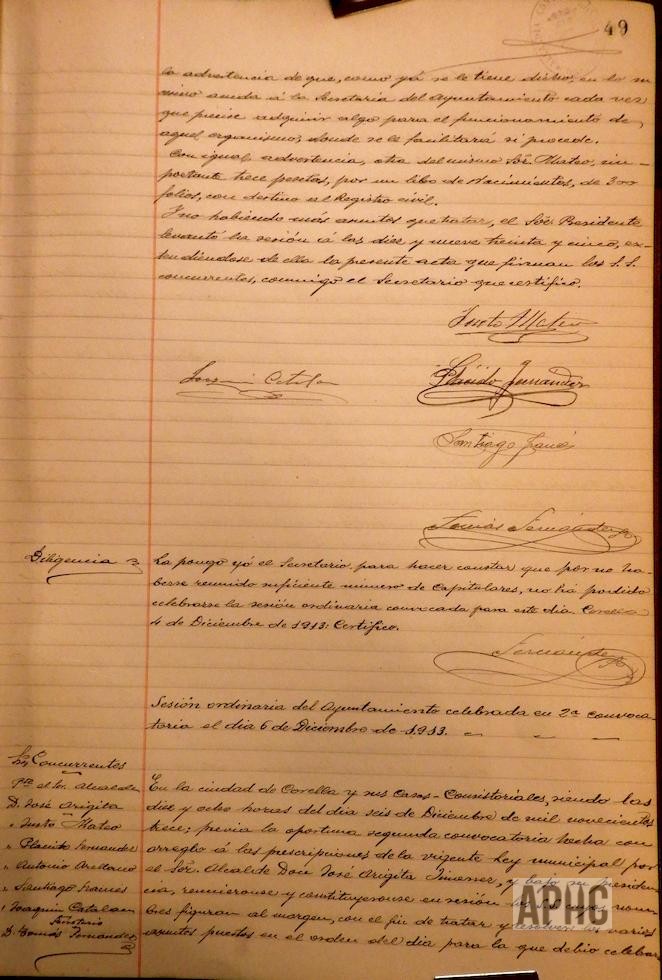 49
la advertencia de que, como yá se le tiene dicho, en lo su
cesivo acuda á la Secretaría del Ayuntamiento cada vez
que precise adquirir algo para el funcionamiento de
aquel organismo, donde se le facilitará si procede.
Con igual advertencia, otra del mismo Sõr. Mateo, im-
portante trece pesetas, por un libro de Nacimientos, de 300
folios, con destino al Registro civil.
Y no habiendo más asuntos que tratar, el Sõr. Presidente
levantó la sesión á las diez y nueve treinta y cinco, ex-
tendiéndose de ella la presente acta que firman los S.S.
concurrentes, conmigo el Secretario que certifico.
Justo Mateo
Joaquin Catalan
Plácido Fernandez
Santiago
Tomás Fernández
Diligencia
La pongo yó el Secretario, para hacer constar que por no ha-
berse reunido suficiente número de Capitulares, no há podido
celebrarse la sesión ordinaria convocada para este dia. Corella
4 de Diciembre de 1913: Certifico.
Fernández
Sesión ordinaria del Ayuntamiento celebrada en 2ª convoca-
toria el dia 6 de Diciembre de 1913.
Concurrentes
Pte el Sr. Alcalde
D. José Arigita
" Justo Mateo
" Placido Fernandez
" Antonio Arellano
" Santiago
" Joaquin Catalan
D. Tomás Fernandez
En la ciudad de Corella y sus Casas-Consistoriales, siendo las
diez y ocho horas del dia seis de Diciembre de mil novecientos
trece; previa la oportuna segunda convocatoria hecha con
arreglo á las prescripciones de la vigente ley municipal por
el Sõr. Alcalde Don José Arigita Jimenez, y bajo su presiden
cia, reunieronse y constituyeronse en sesión los S.S. cuyos nom-
bres figuran al margen, con el fin de tratar y resolver los varios
asuntos puestos en el orden del dia para la que debió celebrar
APHC